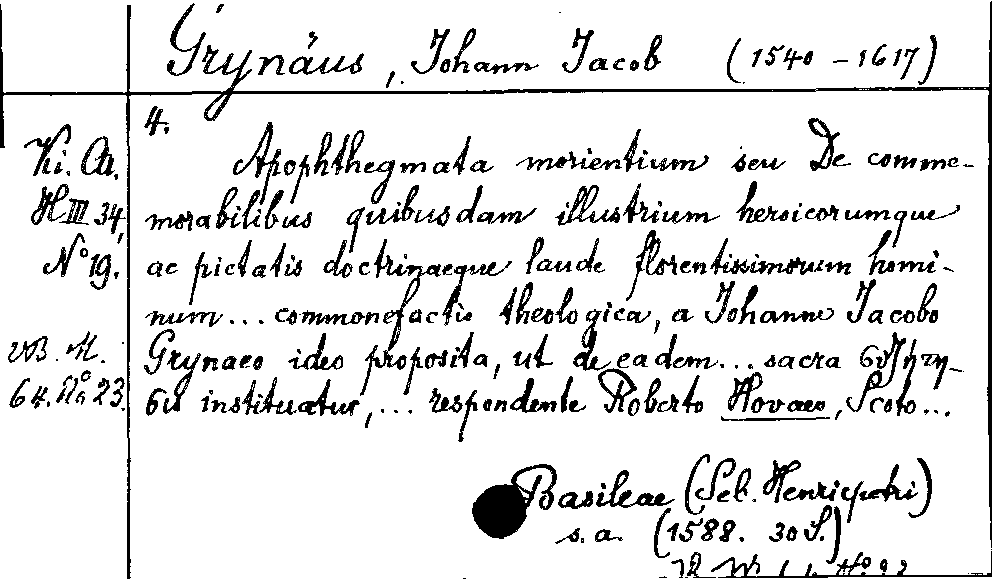 Grynäus, Johann Jacob (1540-1617)
4.
Ki. Ar.
H III 34,
N° 19.
Apophthegmata morientium seu De comme-
morabilibus quibusdam illustrium heroicorumque
ac pietatis doctrinaeque laude florentissimorum homi-
num... commonefactio theologica, a Johanne Jacobo
VB. M.
Grynaeo ideo proposita, ut de eadem... sacra
64. No 23.
instituatur,... respondente Roberto Hovaeo, Scoto...
Basileae (Seb. Henricpetri)
s. a. (1588. 30 S.)